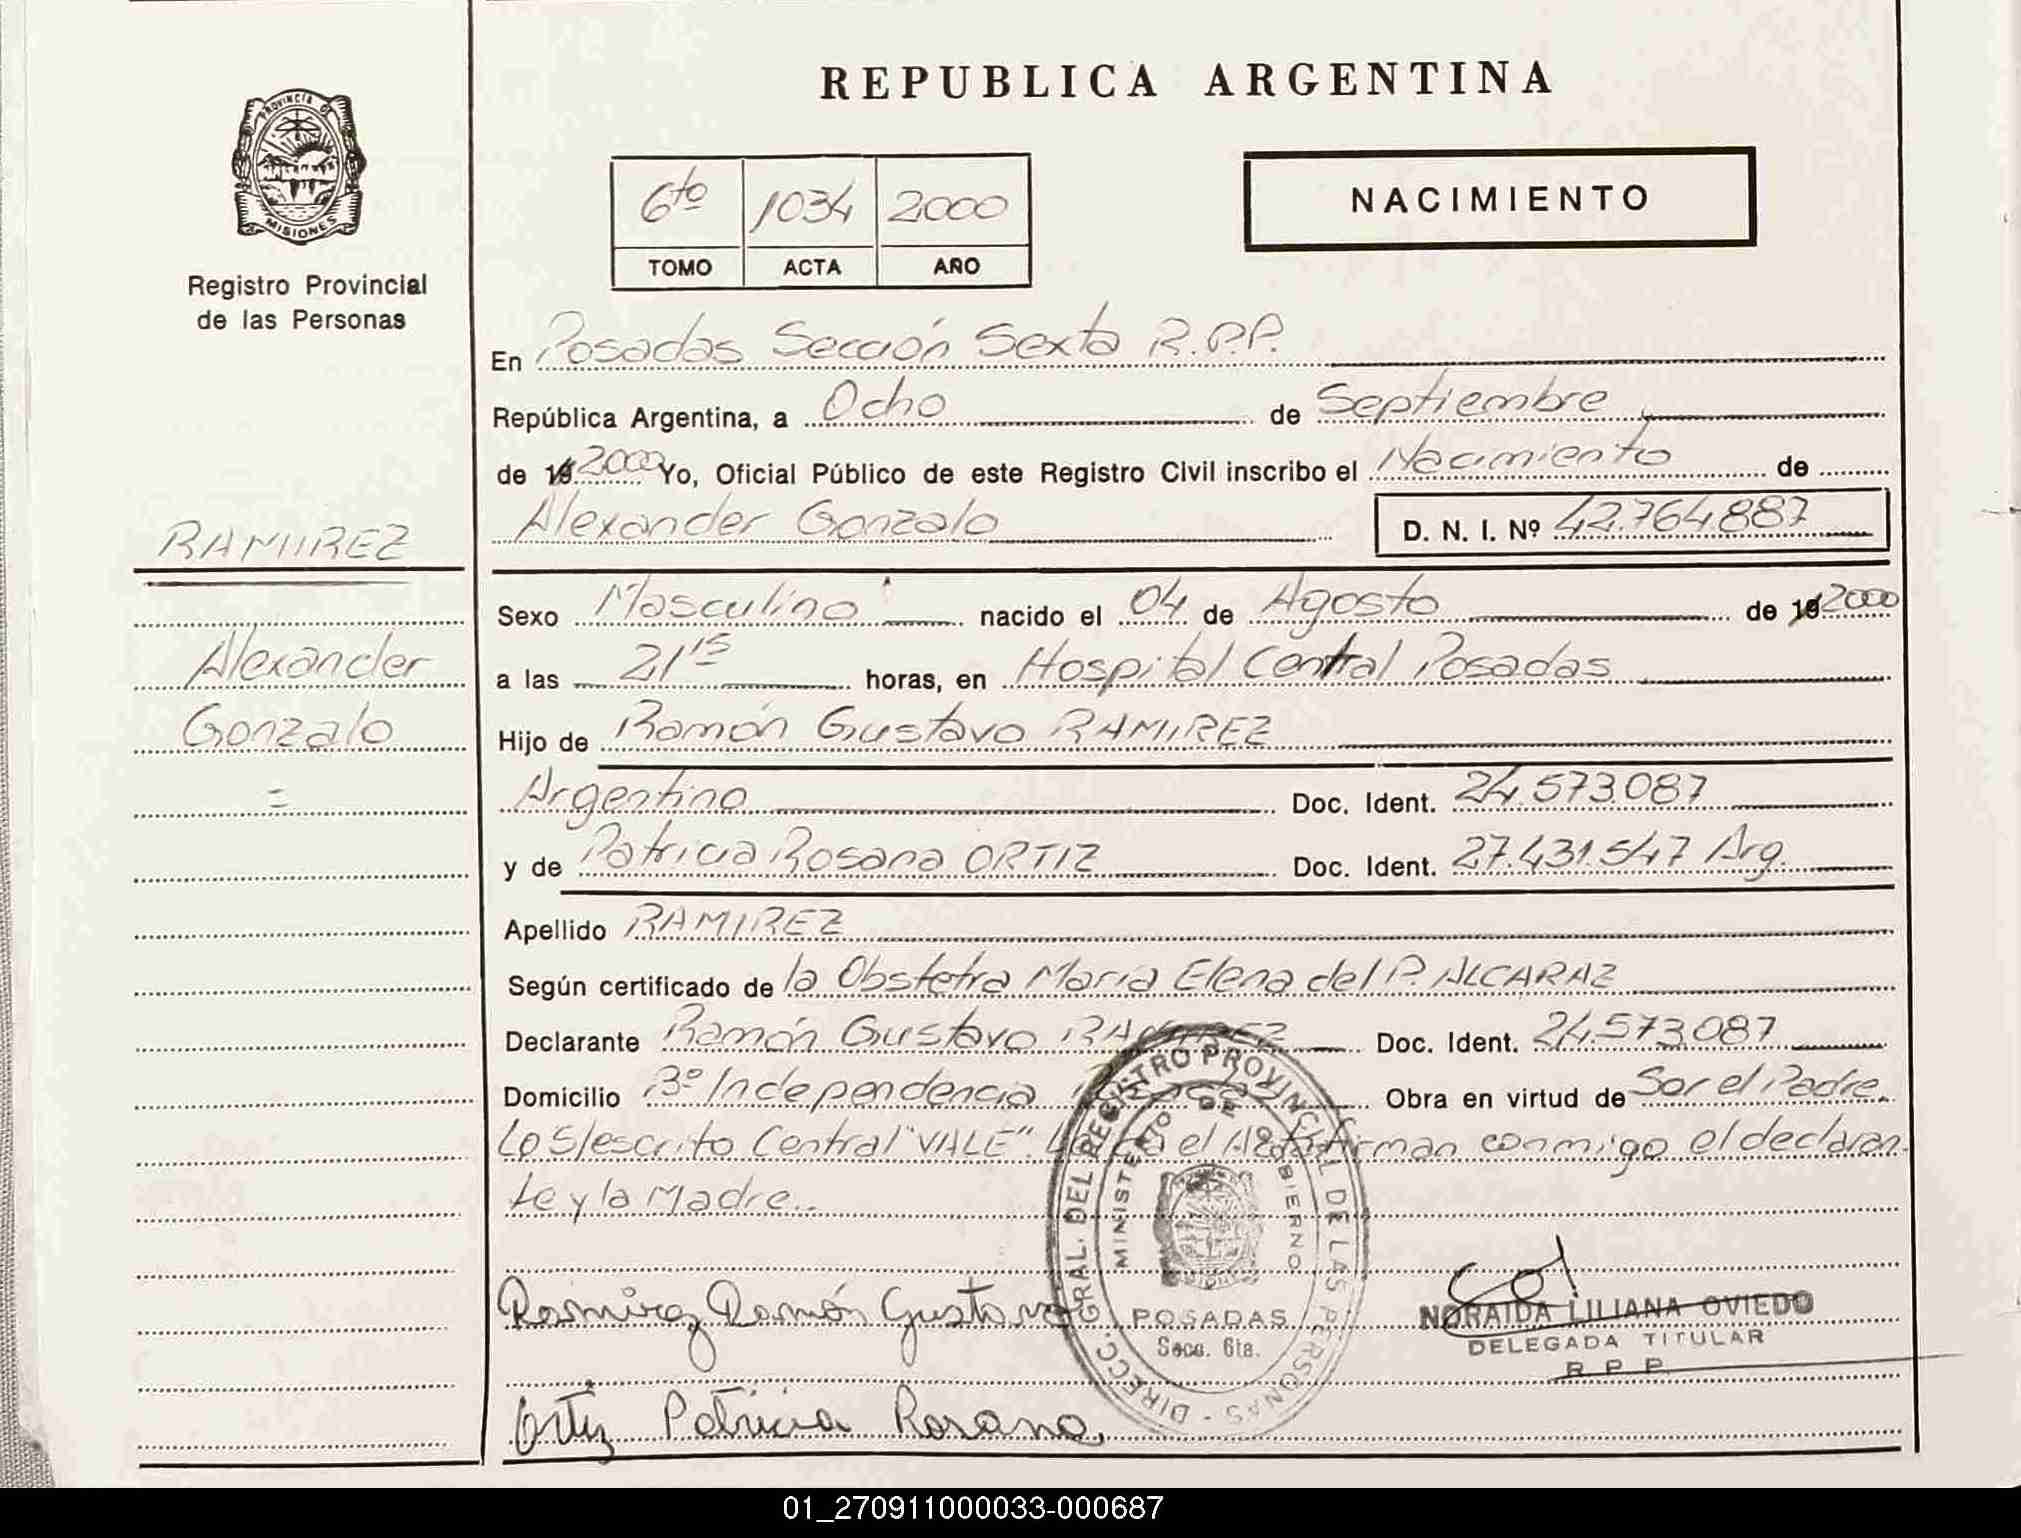 REPUBLICA ARGENTINA
PROVINCIA DE
MISIONES
Registro Provincial
de las Personas
6to 1034 2000
TOMO ACTA AÑO
NACIMIENTO
En Posadas Sección Sexta R.P.P.
República Argentina, a Ocho de Septiembre
de 19 2000 Yo, Oficial Público de este Registro Civil inscribo el Nacimiento de
Alexander Gonzalo D. N. I. Nº 42.764.887
RAMIREZ
Alexander
Gonzalo
Sexo Masculino nacido el 04 de Agosto de 19 2000
a las 21 15 horas, en Hospital Central Posadas
Hijo de Ramón Gustavo RAMIREZ
Argentino Doc. Ident. 24.573.087
y de Patricia Rosana ORTIZ Doc. Ident. 27.431.547 Arg.
Apellido RAMIREZ
Según certificado de la Obstetra María Elena del P. ALCARAZ
Declarante Ramón Gustavo RAMIREZ Doc. Ident. 24.573.087
Domicilio Bº Independencia Obra en virtud de Ser el Padre.
Lo S/escrito Central "VALE". el Acta firman conmigo el declaran
te y la Madre..
DIRECC. GRAL. DEL REGISTRO PROVINCIAL DE LAS PERSONAS -
MINISTERIO DE GOBIERNO
POSADAS
Secc. 6ta.
Ramirez Ramón Gustavo
NORAIDA LILIANA OVIEDO
DELEGADA TITULAR
R P P
Ortiz Patricia Rosana
01_270911000033-000687